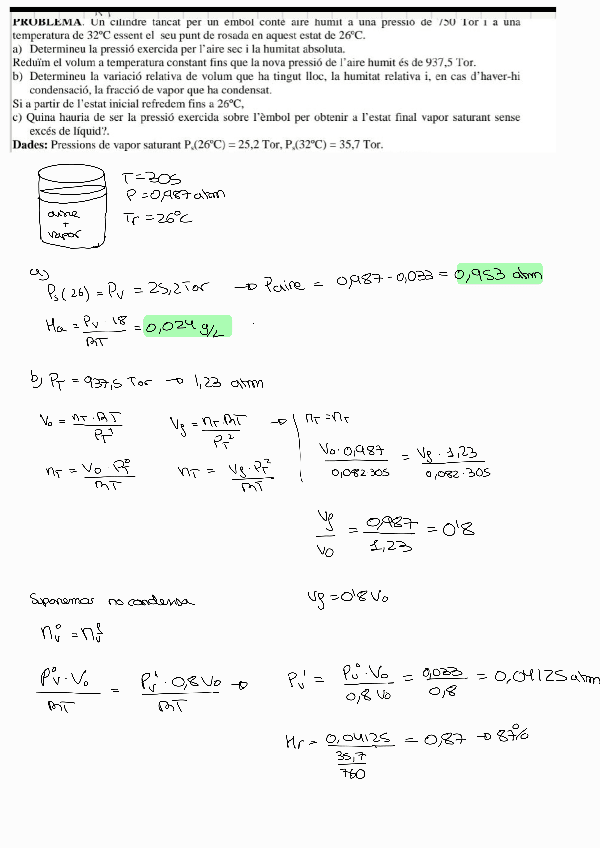 PROBLEMA. Un cilindre tancat per un èmbol conté aire humit a una pressió de 750 Tor i a una
temperatura de 32ºC essent el seu punt de rosada en aquest estat de 26ºC.
a) Determineu la pressió exercida per l'aire sec i la humitat absoluta.
Reduïm el volum a temperatura constant fins que la nova pressió de l'aire humit és de 937,5 Tor.
b) Determineu la variació relativa de volum que ha tingut lloc, la humitat relativa i, en cas d'haver-hi
condensació, la fracció de vapor que ha condensat.
Si a partir de l'estat inicial refredem fins a 26ºC,
c) Quina hauria de ser la pressió exercida sobre l'èmbol per obtenir a l'estat final vapor saturant sense
excés de líquid?.
Dades: Pressions de vapor saturant Pₛ(26ºC) = 25,2 Tor, Pₛ(32ºC) = 35,7 Tor.
T = 305
P = 0,987 atm
Tr = 26ºC
aire
+
vapor
a)
Ps(26) = Pv = 25,2 Tor → Paire = 0,987 - 0,033 = 0,953 atm
Ha = Pv · 18 / RT = 0,024 g/L
b) PT = 937,5 Tor → 1,23 atm
V0 = nT · RT / PT¹   Vf = nT · RT / PT² → nT = nT
nT = V0 · PT⁰ / RT   nT = Vf · PT² / RT   V0 · 0,987 / 0,082 305 = Vf · 1,23 / 0,082 · 305
Vf / V0 = 0,987 / 1,23 = 0'8
Suponemos no condensa   Vf = 0'8 V0
nv⁰ = nvᶠ
Pv⁰ · V0 / RT = Pv¹ · 0,8 V0 / RT → Pv¹ = Pv⁰ · V0 / 0,8 V0 = 0,033 / 0,8 = 0,04125 atm
Hr = 0,04125 / (35,7 / 760) = 0,87 → 87%